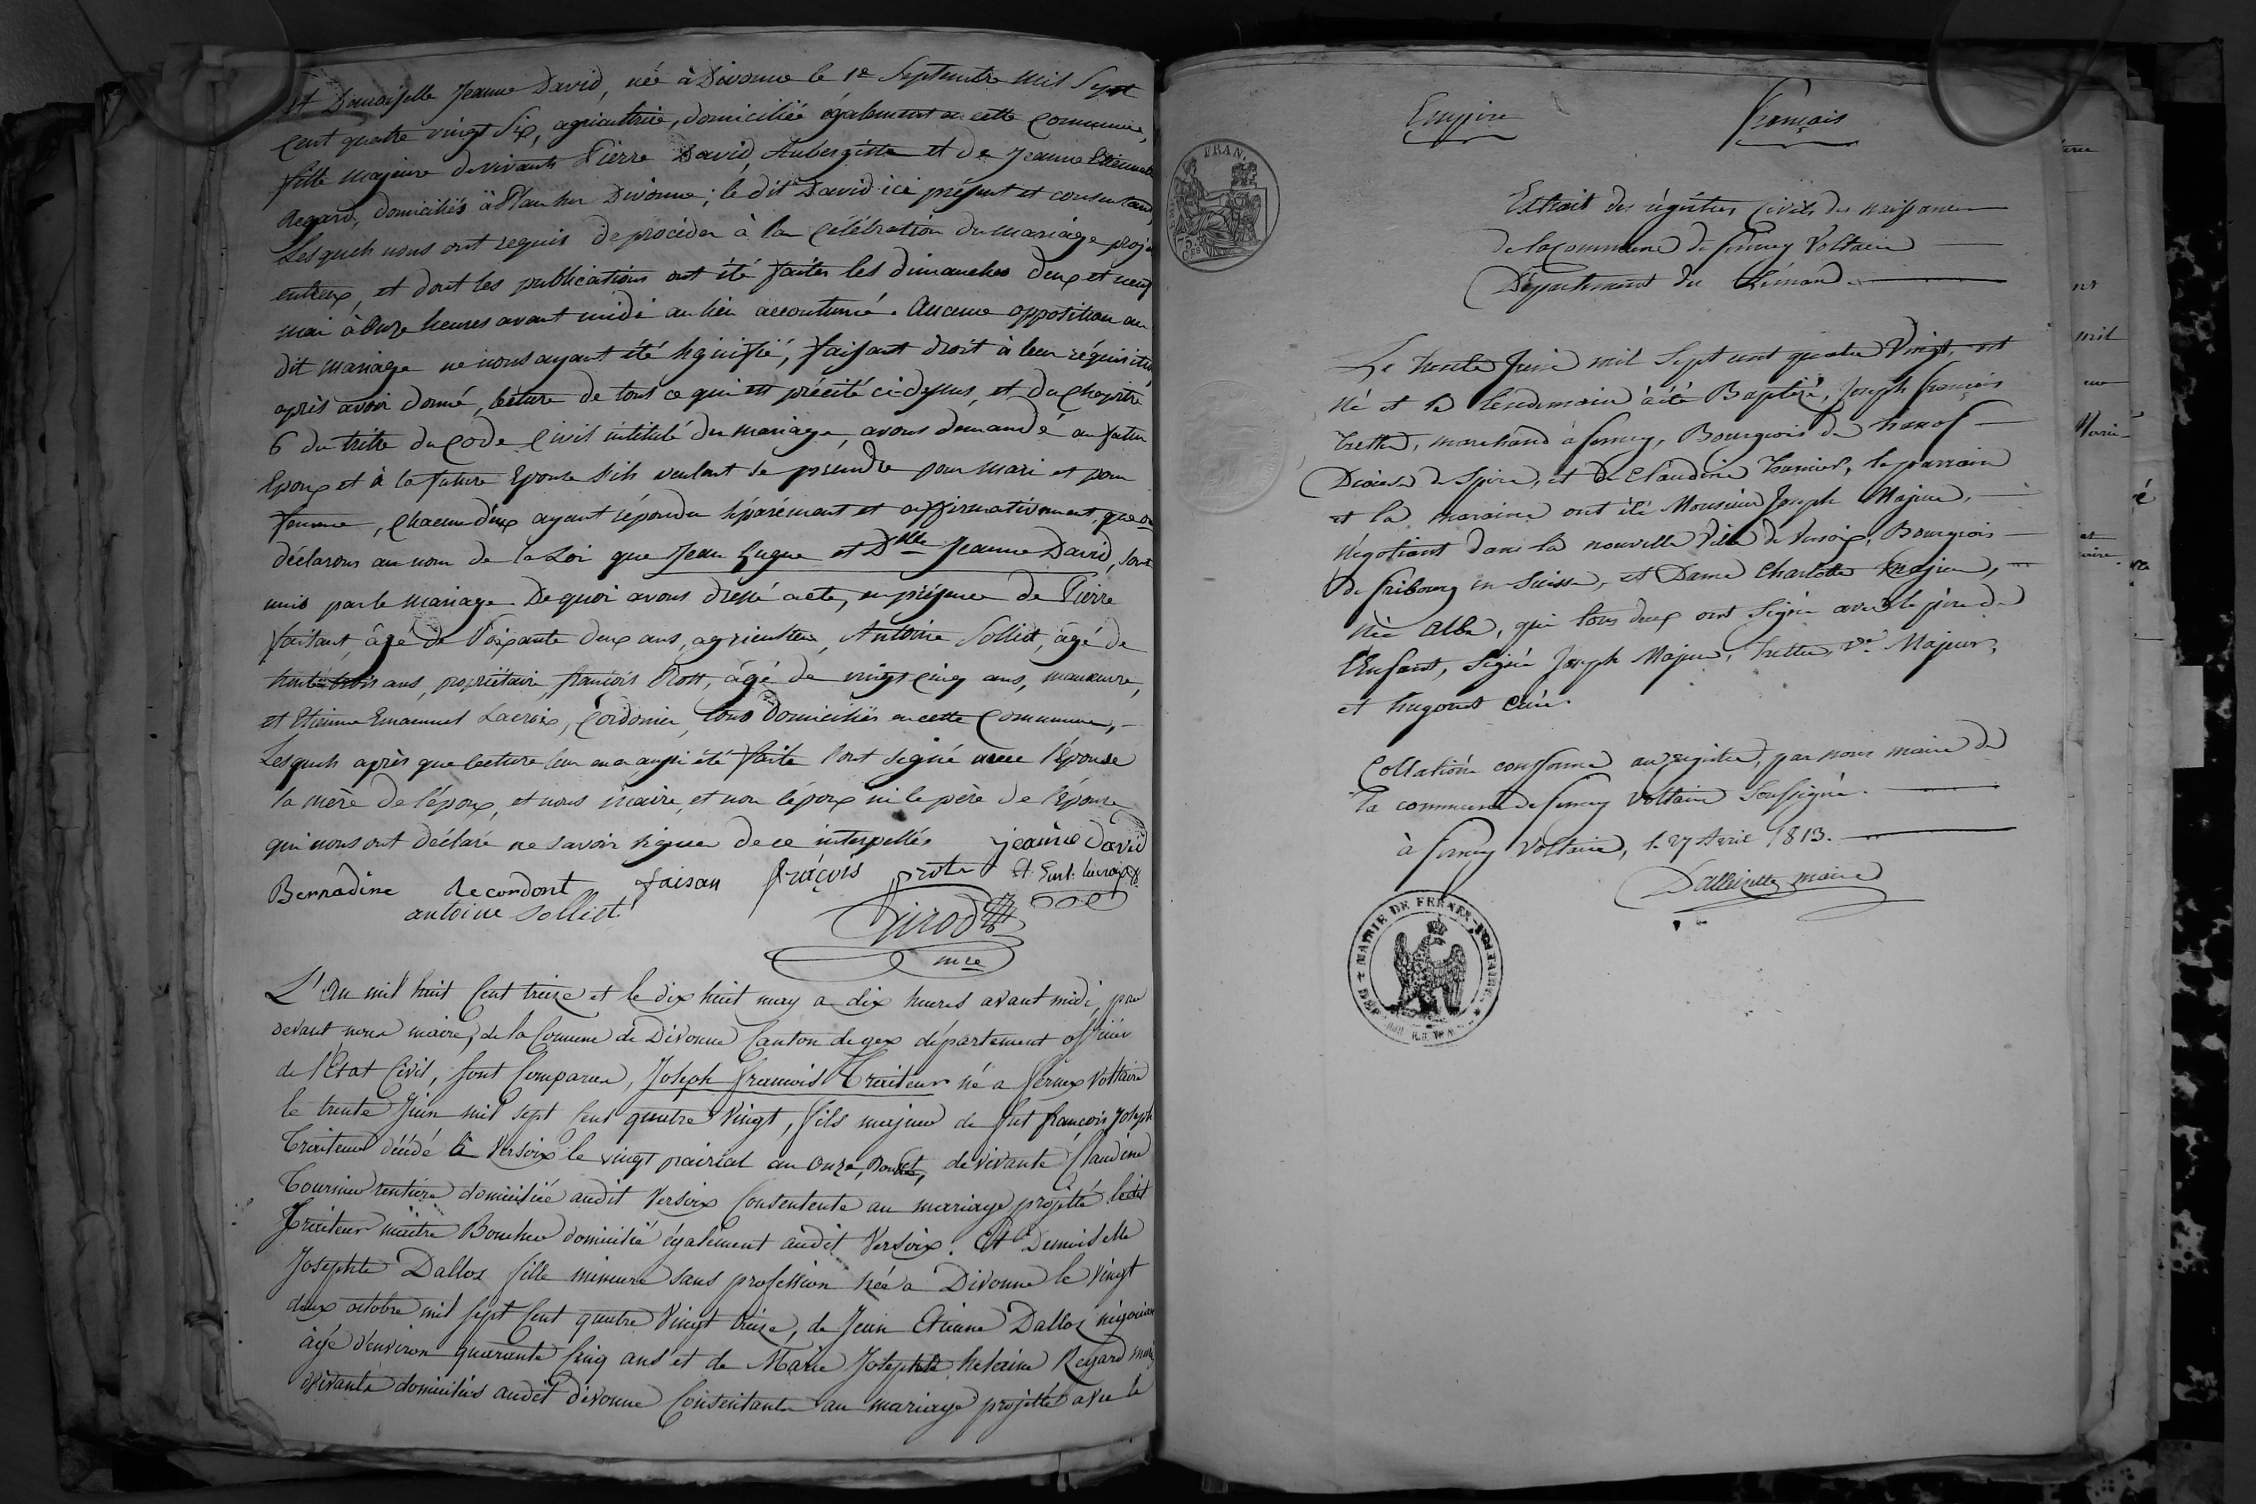 Et Damoiselle Jeanne David, née à Divonne le 1er Septembre mil Sept
Cent quatre vingt Six, agricultrice, domiciliée également en cette Commune,
fille majeure de vivants Pierre David, Aubergiste et de Jeanne Etiennette
Regard, domiciliés à Plan sur Divonne; le dit David ici présent et consentant,
Lesquels nous ont requis de procéder à la Célébration du mariage projeté
entreux, et dont les publications ont été faites les dimanches deux et neuf
mai à Onze heures avant midi au lieu accoutumé. Aucune opposition au
dit mariage ne nous ayant été signifié, faisant droit à leur réquisition
après avoir donné lecture de tout ce qui est précité ci-dessus, et du Chapitre
6 du titre du Code Civil intitulé du mariage, avons demandé au futur
Epoux et à la future Epouse s'ils veulent se prendre pour mari et pour
femme, Chacun d'eux ayant répondu séparément et affirmativement, que oui
déclarons au nom de la Loi que Jean Gugue et Dlle Jeanne David, sont
unis par le mariage De quoi avons dressé acte, en présence de Pierre
âgé de Soixante deux ans, agriculteur, Antoine Solliet, âgé de
trente trois ans, propriétaire, françois Prost, âgé de vingt Cinq ans, manœuvre,
et Etienne Emanuel Lacroix, Cordonier, tous Domiciliés en cette Commune,
Lesquels après que lecture leur en a aussi été faite l'ont signé avec l'épouse
la mère de l'époux, et nous maire, et non l'époux ni le père de l'épouse
qui nous ont déclaré ne savoir signer de ce interpellés jeanne David
Bernadine Recordont faisan françois prote Et. Eml. lacroix
antoine Solliet
Girod
mre
L'An mil huit Cent treize et le dix huit may a dix heures avant midi, par
devant nous maire, de la Comune de Divonne Canton de gex département officier
de l'Etat Civil, sont Comparus, Joseph francois Traiteur né a fernex Voltaire
le trente Juin mil sept Cent quatre Vingt, fils majeur de fut françois Joseph
Traiteur décédé à Versoix le vingt prairial an onze, de vivante Claudine
Tournier rentiere domiciliée audit Versoix Consentente au mariage projetté ledit
Traiteur maitre Boucher domicilié également audit Versoix. Et Demoiselle
Josephte Dalloz fille mineure sans profession née a Divonne le Vingt
deux octobre mil sept Cent quatre Vingt treize, de Jean Etiene Dalloz négociant
âgé d'environ quarante Cinq ans et de Marie Josephte Regard
vivants domiciliés audit divonne Consentants au mariage projetté avec le
Empire français
Extrait des régistres Civils des naissances
de la commune de ferney Voltaire
Département du Léman
Le trente Juin mil Sept cent quatre Vingt, est
né et le lendemain à été Baptizé, Joseph françois
tretter, marchand à ferney, Bourgeois de
Diocèse de Spire, et de Claudine Tournier, le parrain
et la maraine ont été Monsieur Joseph Majeur,
Négotiant dans la nouvelle Ville de Versoix, Bourgeois
de fribourg en Suisse, et Dame Charlotte Majeur,
née Albe, qui tous deux ont Signé avec le père de
l'Enfant, Signé Joseph Majeur, tretter, Majeur,
et hugonet Curé.
Collationé conforme au registre, par nous maire de
la commune de ferney Voltaire Soussigné.
à ferney Voltaire, le 27 Avril 1813.
maire
FRAN.
MAIRIE DE FERNEY-VOLTAIRE